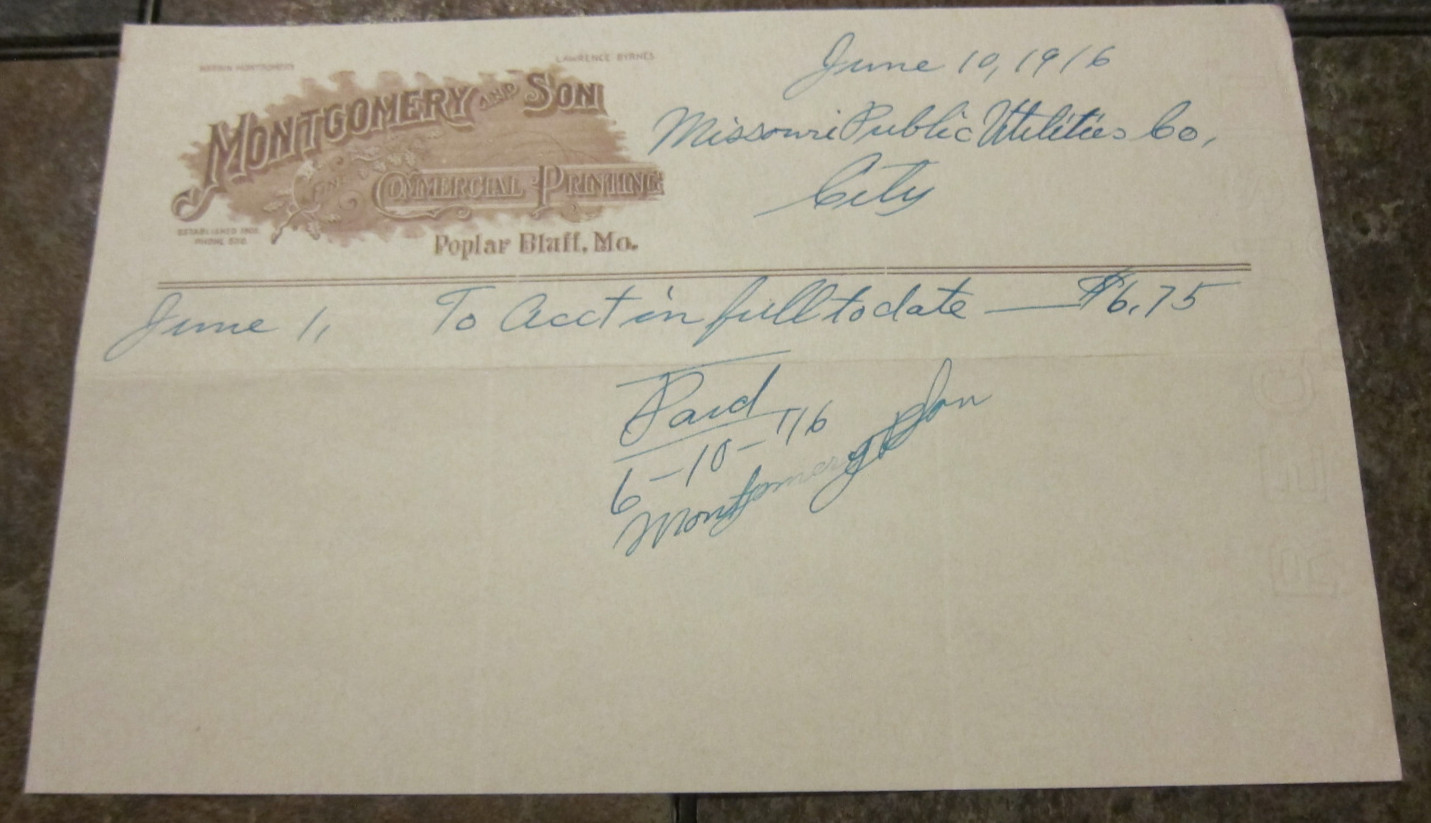 LAWRENCE BYRNES
MONTGOMERY AND SON
FINE COMMERCIAL PRINTING
ESTABLISHED
PHONE
Poplar Bluff, Mo.
June 10, 1916
Missouri Public Utilities Co,
City
June 1, To Acct in full to date — $6.75
Paid
6-10-16
Montgomery & Son